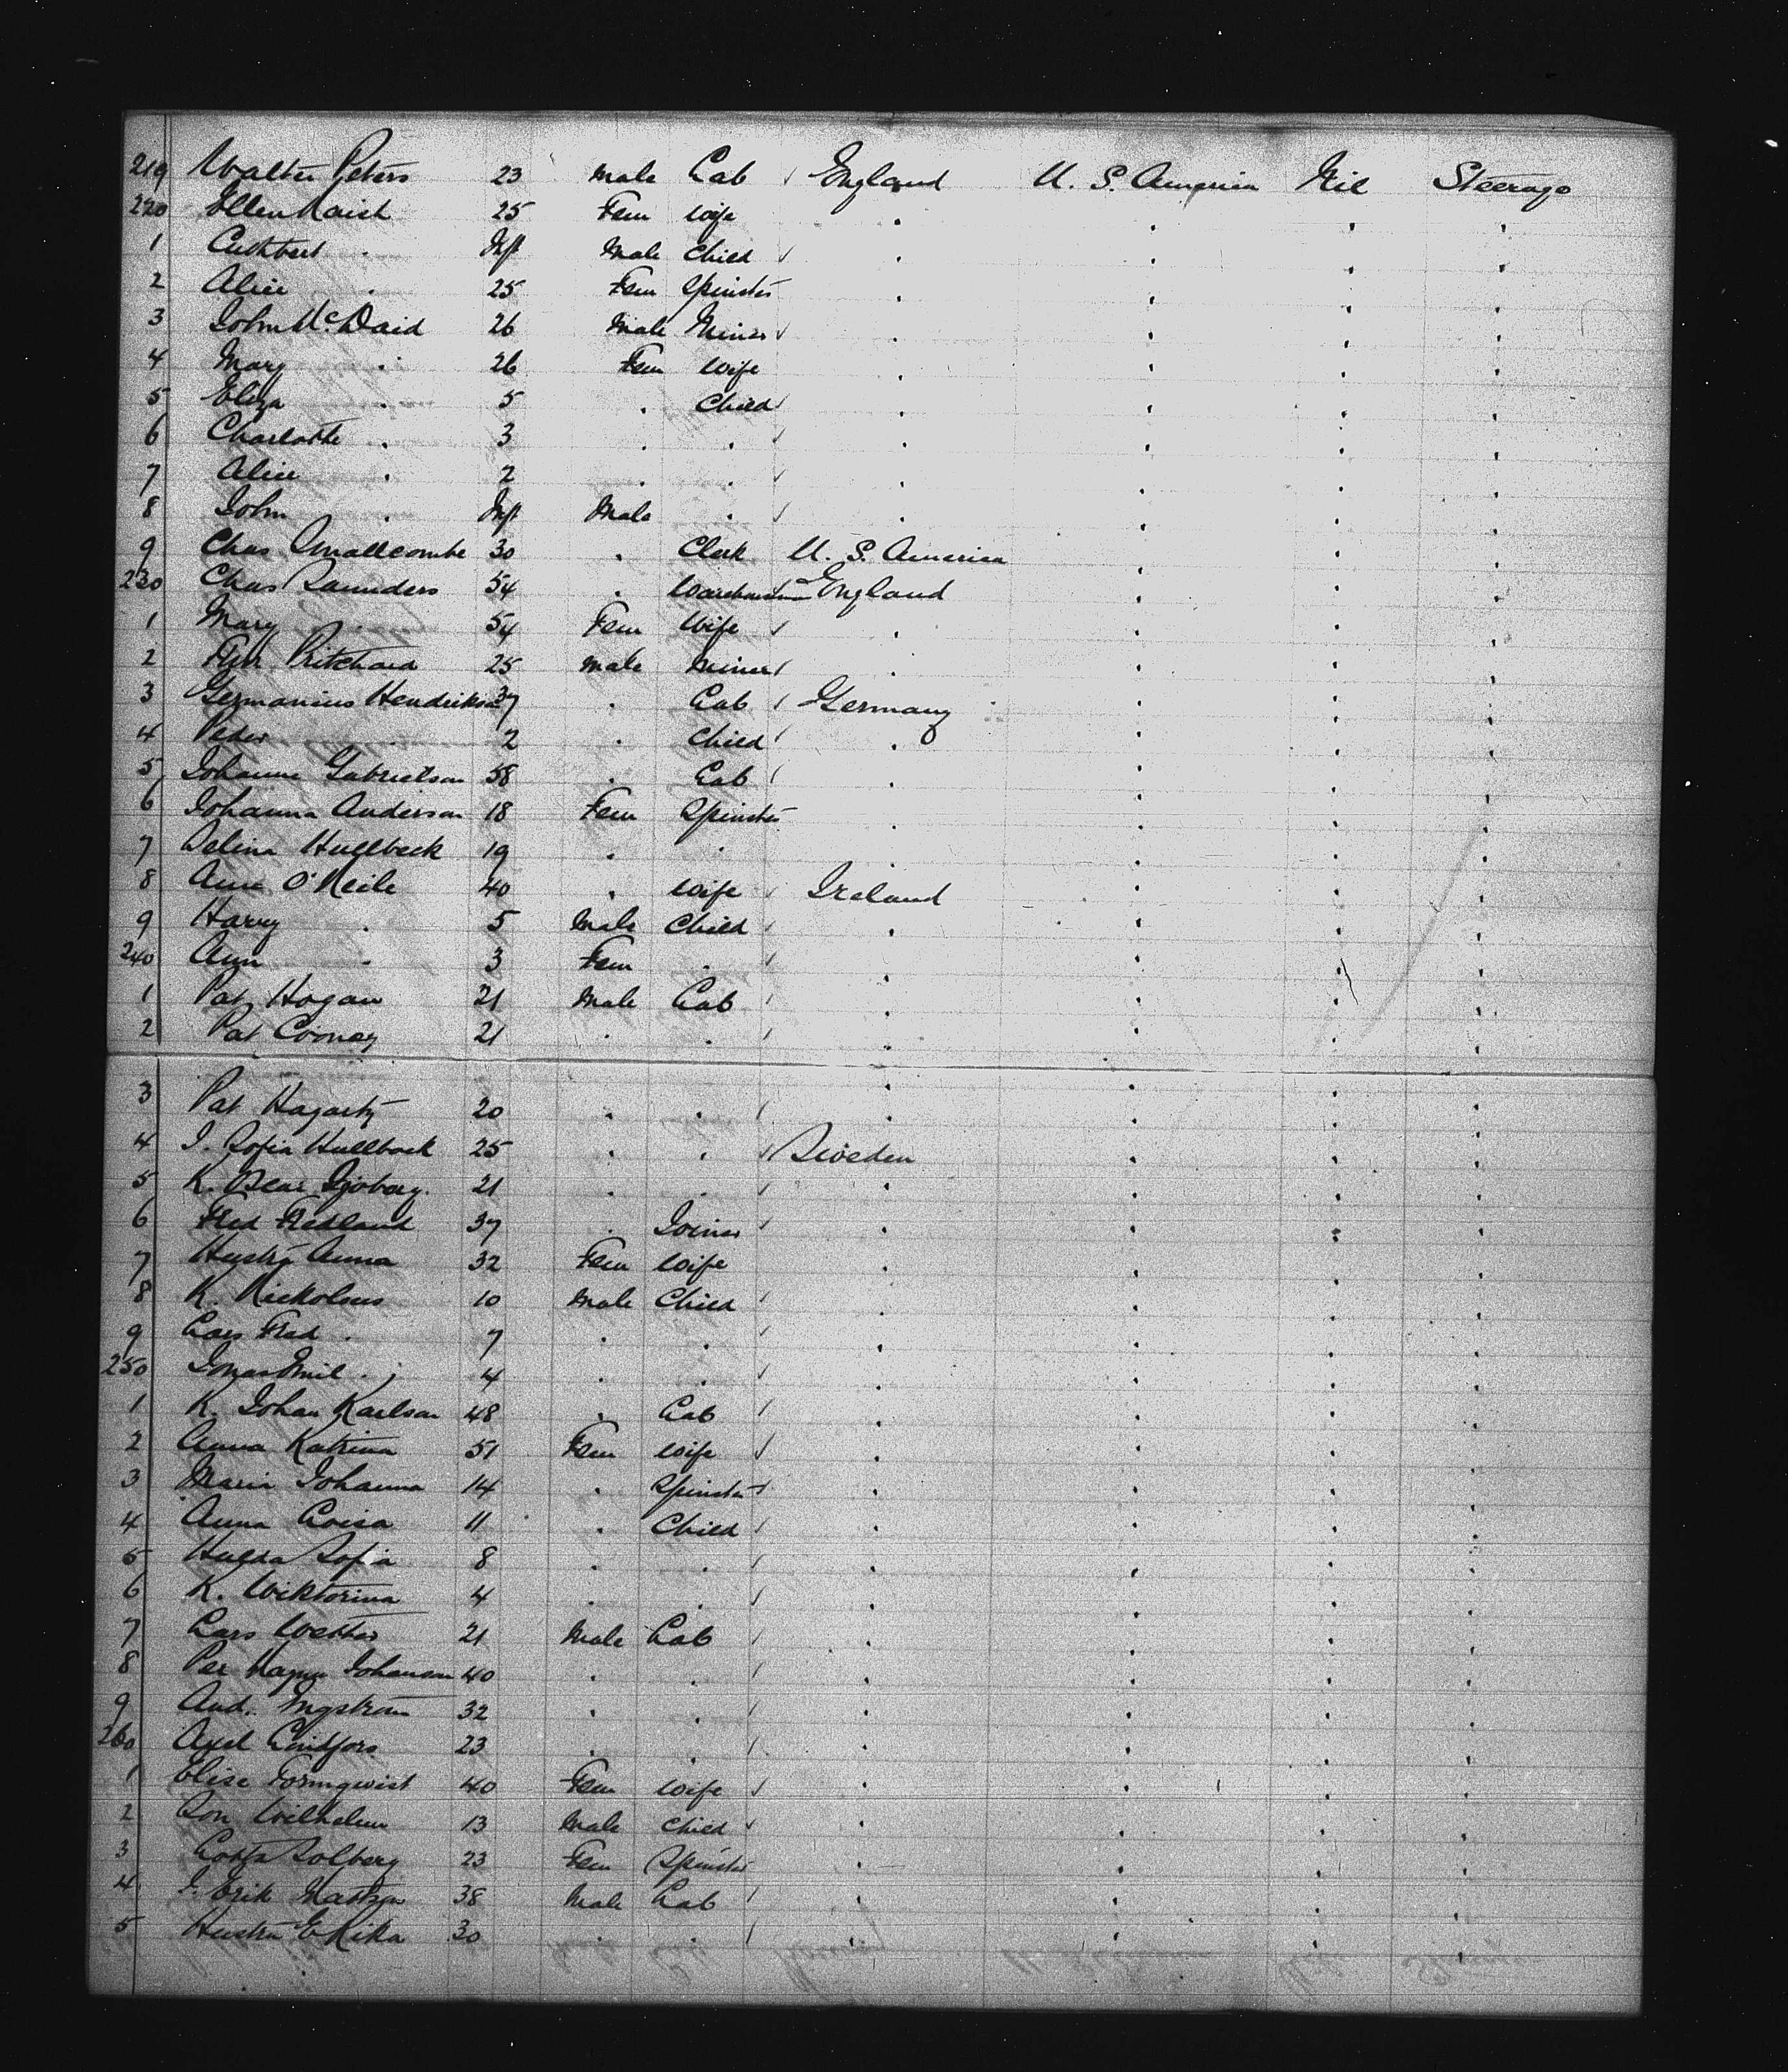 219 Walter Peters 23 Male Lab England U. S. America Nil Steerage
220 Ellen Naish 25 Fem Wife " " " "
1 Cuthbert " Inft Male Child " " " "
2 Alice " 25 Fem Spinster " " " "
3 John McDaid 26 Male Miner " " " "
4 Mary " 26 Fem Wife " " " "
5 Eliza " 5 " Child " " " "
6 Charlotte " 3 " " " " " "
7 Alice " 2 " " " " " "
8 John " Inft Male " " " " "
9 Chas Smallcombe 30 " Clerk U. S. America " " "
230 Chas Saunders 54 " England " " "
1 Mary " 54 Fem Wife " " " "
2 Pritchard 25 Male Miner " " " "
3 Germanius Hendrikson 37 " Lab Germany " " "
4 Peder " 2 " Child " " " "
5 Johanne Gabrielson 58 " Lab " " " "
6 Johanna Anderson 18 Fem Spinster " " " "
7 Selina Hullbeck 19 " " " " " "
8 Ann O'Neile 40 " Wife Ireland " " "
9 Harry " 5 Male Child " " " "
240 Ann " 3 Fem " " " " "
1 Pat Hogan 21 Male Lab " " " "
2 Pat Cooney 21 " " " " " "
3 Pat Hagarty 20 " " " " " "
4 J. Sofia Hullback 25 " " Sweden " " "
5 K. Oscar Sjoberg 21 " " " " " "
6 Fred Fredland 37 " Joiner " " " "
7 Hustru Anna 32 Fem Wife " " " "
8 K. Nickolaus 10 Male Child " " " "
9 Lars Fred " 7 " " " " " "
250 Jonas Emil " 4 " " " " " "
1 K. Johan Karlson 48 " Lab " " " "
2 Anna Katrina 51 Fem Wife " " " "
3 Maria Johanna 14 " Spinster " " " "
4 Anna Lovisa 11 " Child " " " "
5 Hulda Sofia 8 " " " " " "
6 K. Wiktorina 4 " " " " " "
7 Lars Wetter 21 Male Lab " " " "
8 Per Magnu Johanson 40 " " " " " "
9 And. Engstrom 32 " " " " " "
260 Axel Lindfors 23 " " " " " "
1 Elise Tornqwist 40 Fem Wife " " " "
2 Son Wilhelm 13 Male Child " " " "
3 Lotta Solberg 23 Fem Spinster " " " "
4 J. Erik Mattson 38 Male Lab " " " "
5 Hustru Erika 30 " " " " " "